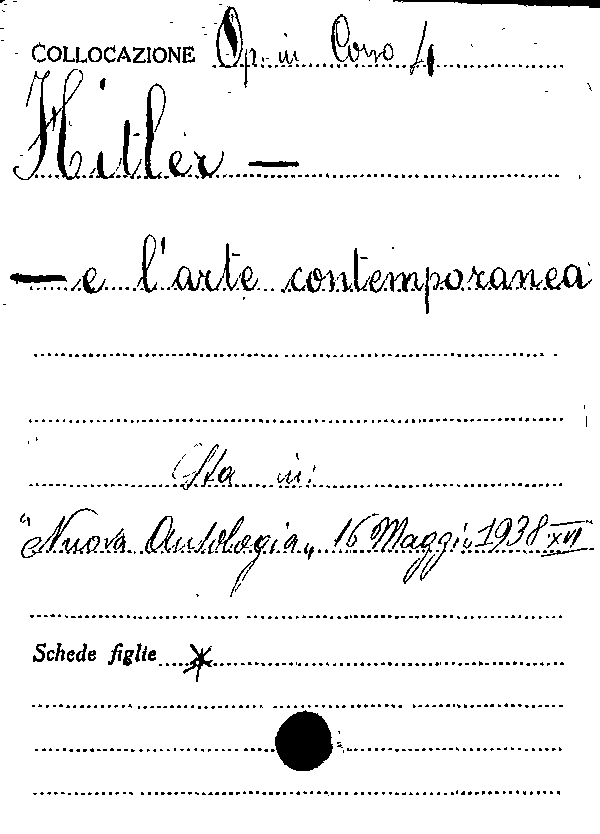 COLLOCAZIONE Op. in Corso 4
Hitler —
— e l'arte contemporanea
Sta in:
"Nuova Antologia„ 16 Maggio 1938 XVI
Schede figlie *